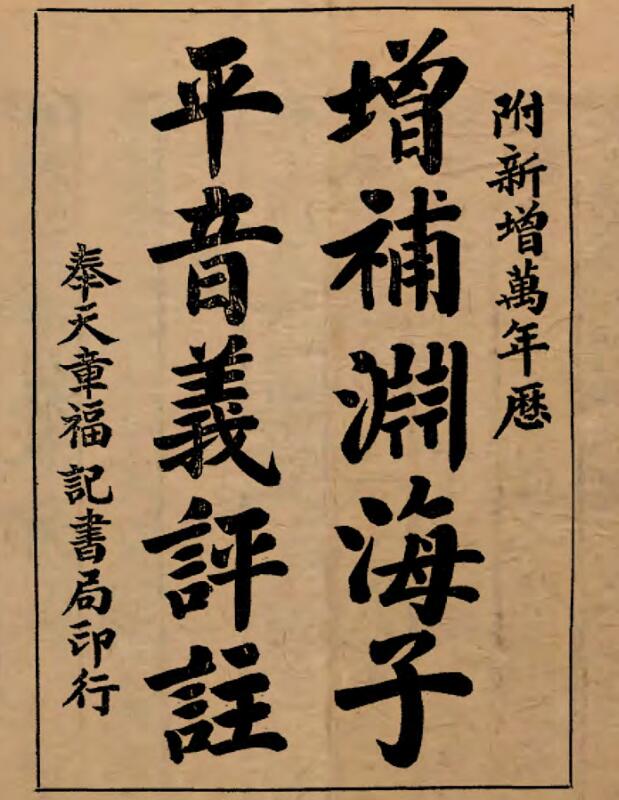 附新增萬年曆
增補淵海子
平音義評註
奉天章福記書局印行